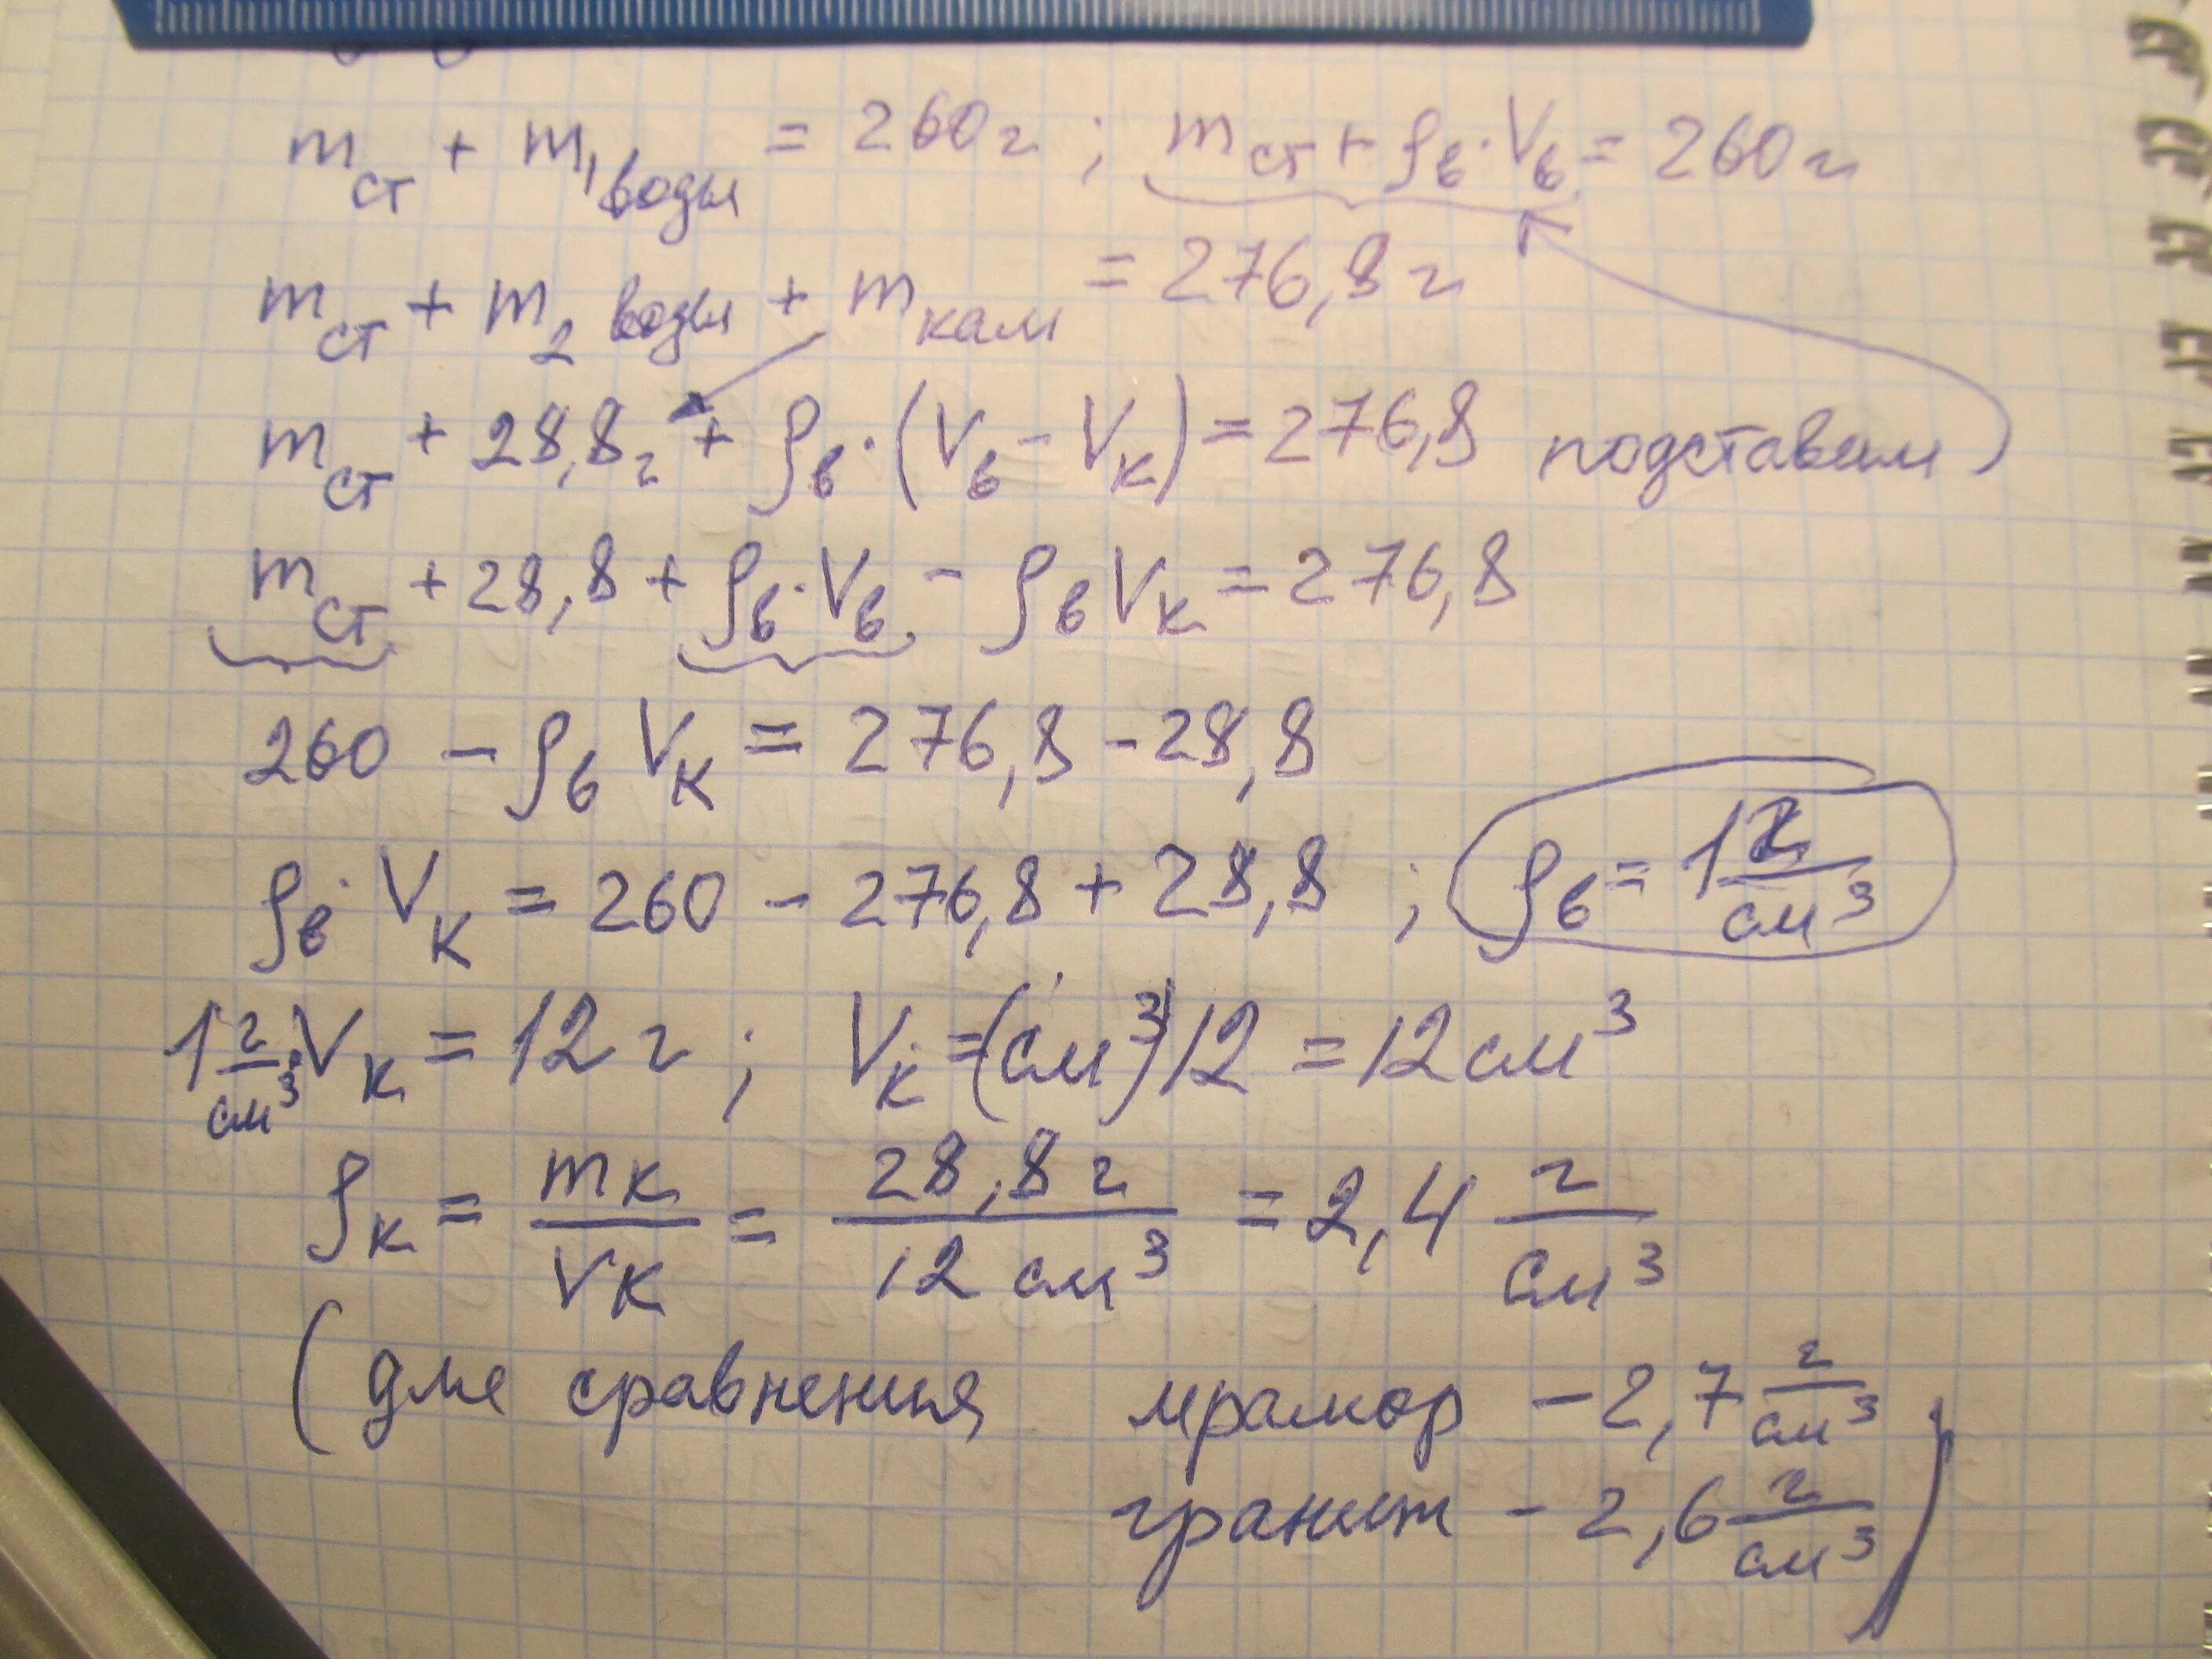 m ст + m₁ воды = 260 г ; m ст + ρв · Vв = 260 г
m ст + m₂ воды + m кам = 276,8 г
m ст + 28,8 г + ρв · (Vв - Vк) = 276,8 подставим
m ст + 28,8 + ρв · Vв - ρв Vк = 276,8
260 - ρв Vк = 276,8 - 28,8
ρв · Vк = 260 - 276,8 + 28,8 ; ρв = 1 г/см³
1 г/см³ · Vк = 12 г ; Vк = (см³) 12 = 12 см³
ρк = mк/Vк = 28,8 г/12 см³ = 2,4 г/см³
(для сравнения мрамор - 2,7 г/см³
гранит - 2,6 г/см³)